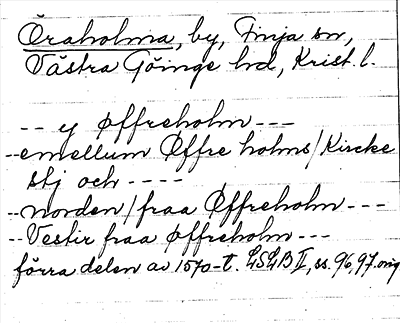 Öraholma, by, Finja sn,
Västra Göinge hd, Krist. l.
-- y Øffreholm ---
-- emellum Øffre holms / Kircke
stj och ----
-- norden / fraa Øffreholm ---
-- Vestir fraa Øffreholm ---
förra delen av 1570-t. LSLB II, ss. 96, 97. orig